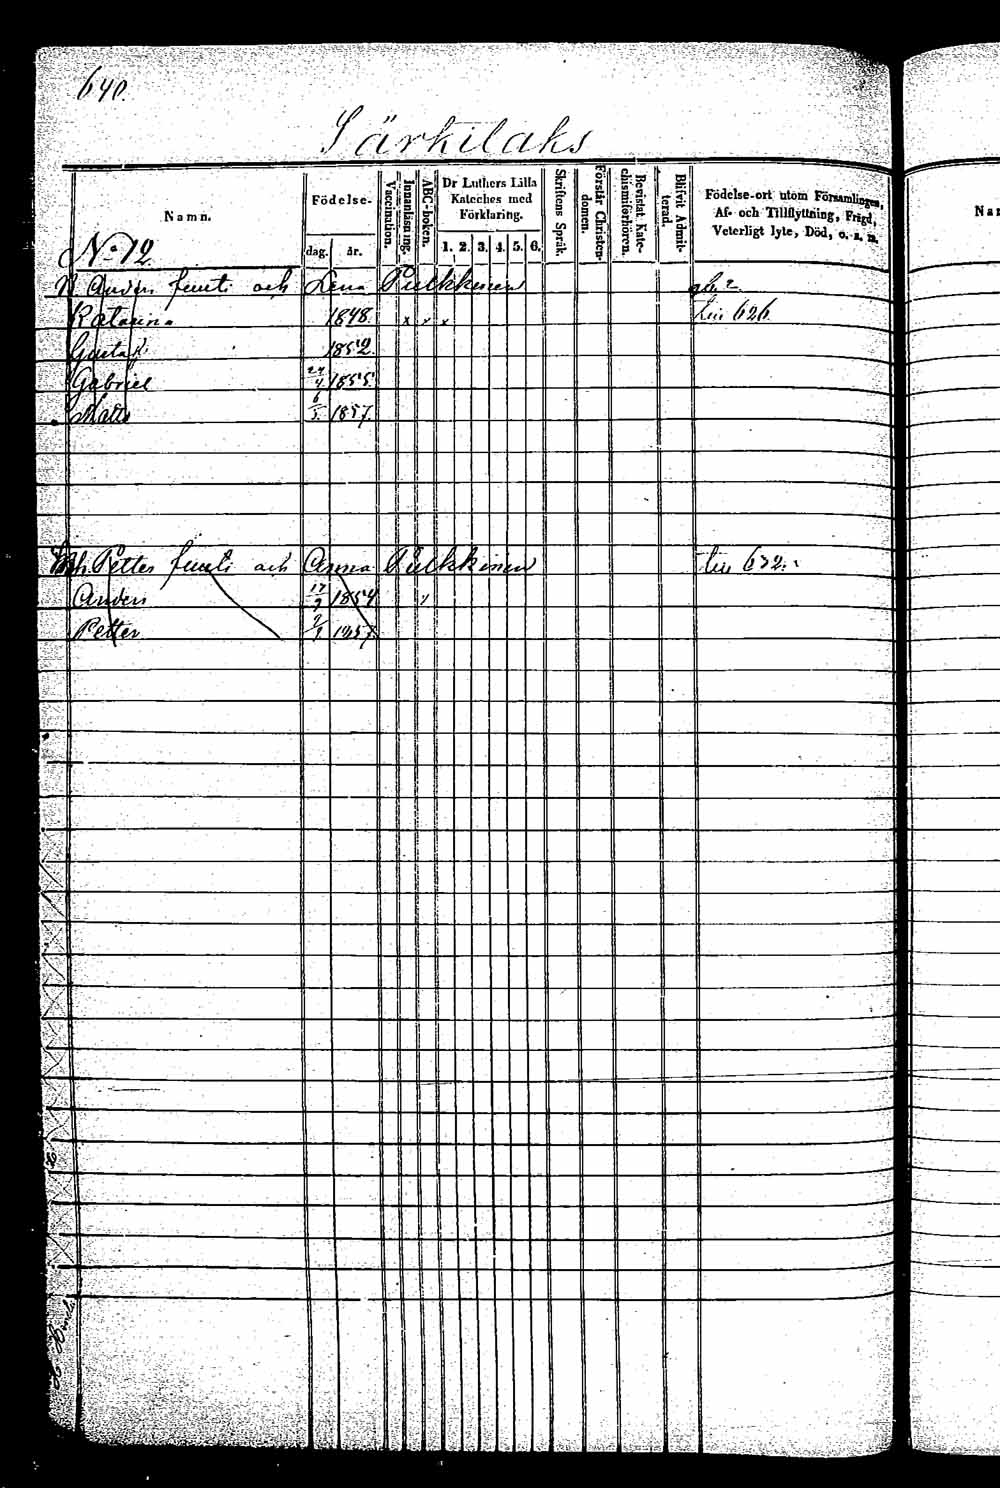 640.
Särkilaks
Namn.
Födelse-
dag. år.
Vaccination.
Innanläsning.
ABC-boken.
Dr Luthers Lilla
Kateches med
Förklaring.
1. 2. 3. 4. 5. 6.
Skriftens Språk.
Förstår Christen-
domen.
Bevistat Kate-
chismiförhören.
Blifvit Admit-
terad.
Födelse-ort utom Församlingen,
Af- och Tillflyttning, Frägd,
Veterligt lyte, Död, o. s. m.
Nar
No 12.
Anders och Lena Pulkkinen
Katarina 1848. x x x 626
Gustaf 1852.
Gabriel 24/4 1855.
Matts 1857.
Petter och Anna Pulkkinen 632.
Anders 17/9 1854
Petter 1857.